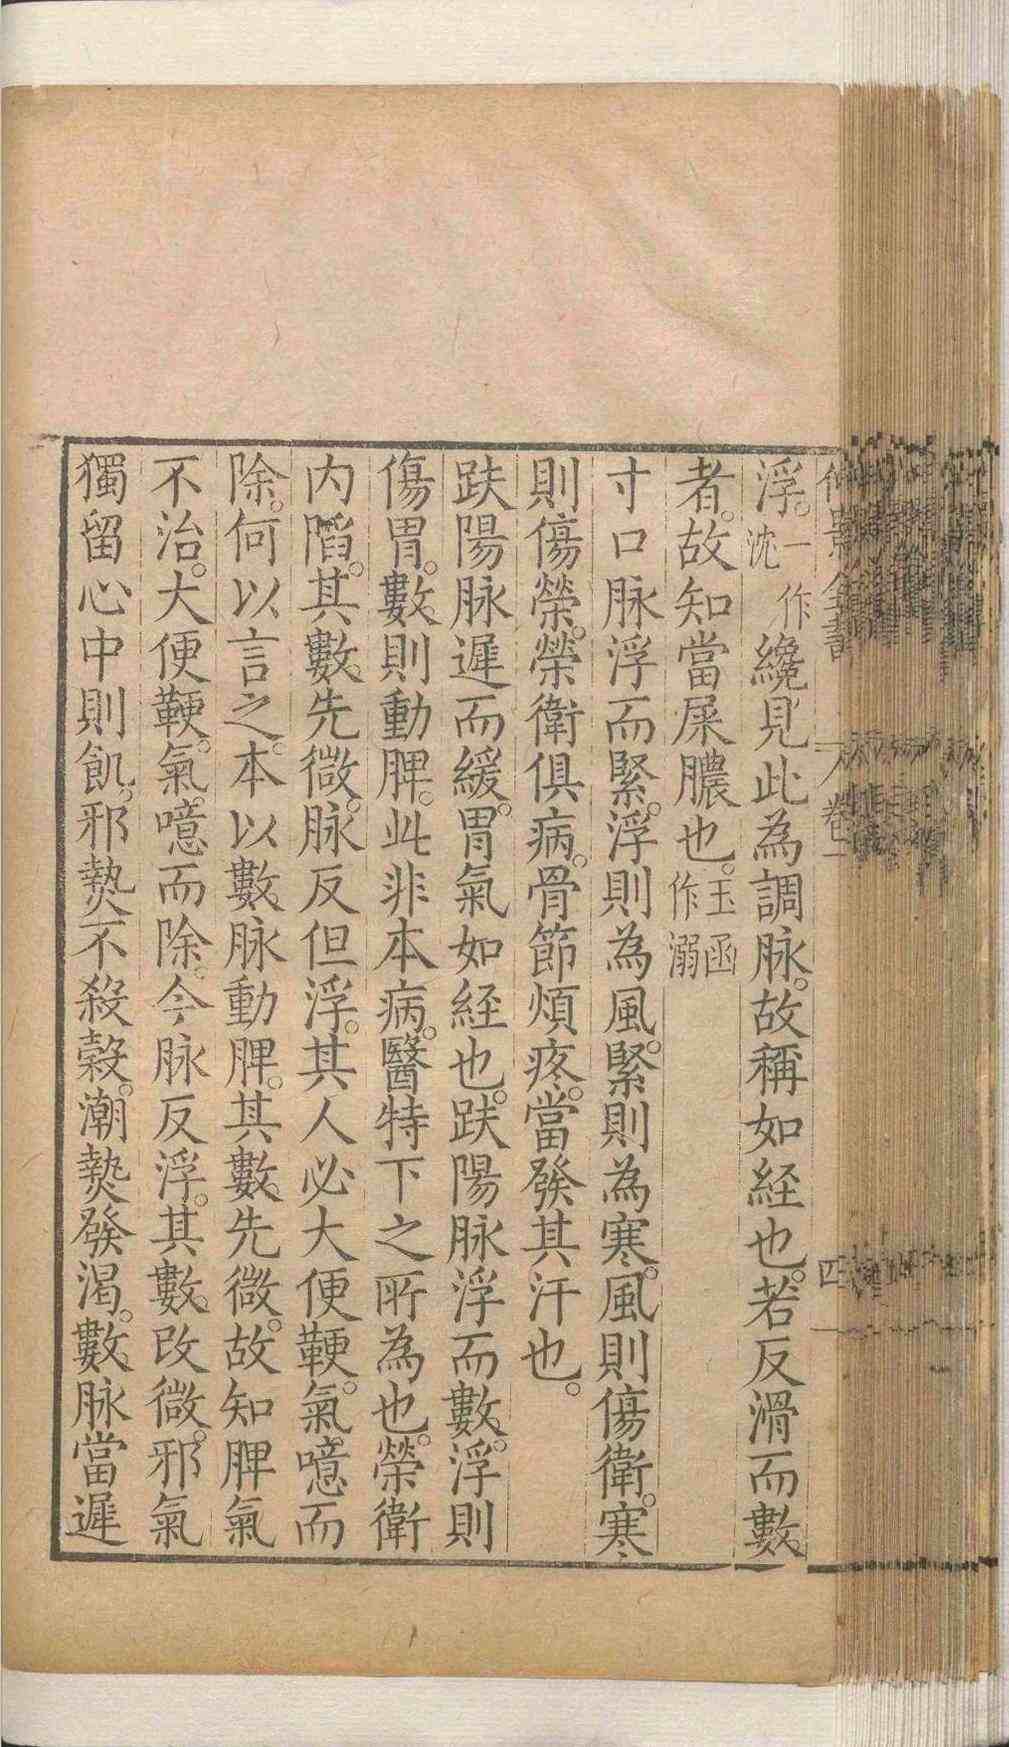 浮。一作沈纔見此為調脉。故稱如経也。若反滑而數
者。故知當屎膿也。玉函作溺
寸口脉浮而緊。浮則為風。緊則為寒。風則傷衛。寒
則傷榮。榮衛俱病。骨節煩疼。當發其汗也。
趺陽脉遲而緩。胃氣如経也。趺陽脉浮而數。浮則
傷胃。數則動脾。此非本病。醫特下之所為也。榮衛
内陷。其數先微。脉反但浮。其人必大便鞕。氣噫而
除。何以言之。本以數脉動脾。其數先微。故知脾氣
不治。大便鞕。氣噫而除。今脉反浮。其數改微。邪氣
獨留。心中則飢。邪熱不殺穀。潮熱發渴。數脉當遲
卷一
四